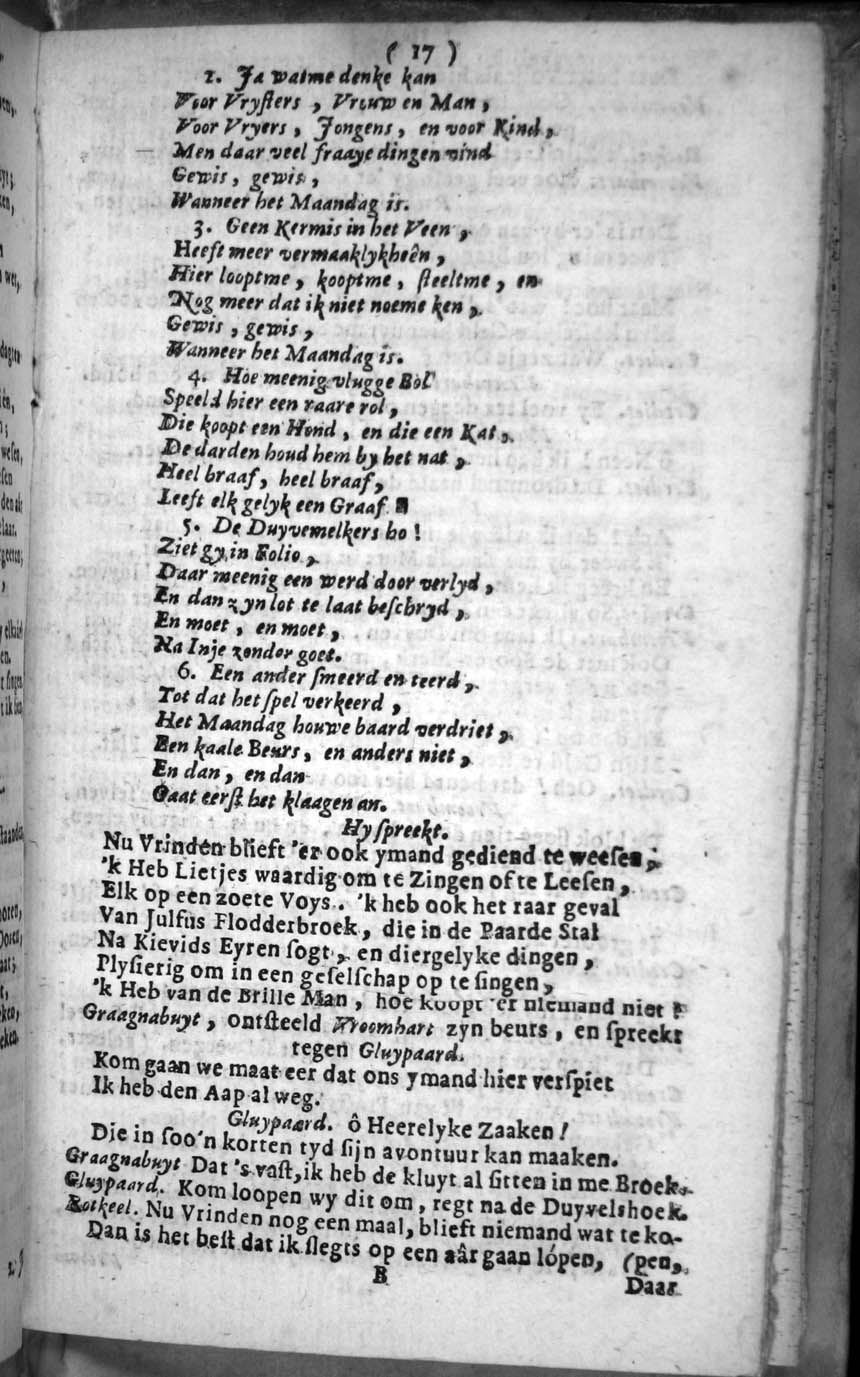 ( 17 )
2. Ja watme denke kan
Voor Vrysters , Vrouw en Man ,
Voor Vryers , Jongens , en voor Kind ,
Men daar veel fraaye dingen vind
Gewis , gewis ,
Wanneer het Maandag is.
3. Geen Kermis in het Veen ,
Heeft meer vermaaklykheên ,
Hier looptme , kooptme , steeltme , en
Nog meer dat ik niet noeme ken ,
Gewis , gewis ,
Wanneer het Maandag is.
4. Hoe meenig vlugge Bol
Speeld hier een raare rol ,
Die koopt een Hond , en die een Kat ,
De darden houd hem by het nat ,
Heel braaf, heel braaf,
Leeft elk gelyk een Graaf.
5. De Duyvemelkers ho !
Ziet gy in Folio ,
Daar meenig een werd door verlyd ,
En dan zyn lot te laat beschryd ,
En moet , en moet ,
Na Inje zonder goet.
6. Een ander smeerd en teerd ,
Tot dat het spel verkeerd ,
Het Maandag houwe baard verdriet ,
Een kaale Beurs, en anders niet ,
En dan , en dan
Gaat eerst het klaagen an.
Hy spreekt.
Nu Vrinden blieft 'er ook ymand gediend te weesen ;
'k Heb Lietjes waardig om te Zingen of te Leesen ,
Elk op een zoete Voys. 'k heb ook het raar geval
Van Julfus Flodderbroek , die in de Paarde Stal
Na Kievids Eyren sogt , en diergelyke dingen ,
Plysierig om in een geselschap op te singen ,
'k Heb van de Brille Man , hoe koopt 'er niemand niet ?
Graagnabuyt , ontsteeld Vroomhart zyn beurs , en spreekt
tegen Gluypaard.
Kom gaan we maat eer dat ons ymand hier verspiet
Ik heb den Aap al weg.
Gluypaard. ô Heerelyke Zaaken !
Die in soo'n korten tyd sijn avontuur kan maaken.
Graagnabuyt Dat 's vast, ik heb de kluyt al sitten in me Broek.
Gluypaard. Kom loopen wy dit om , regt na de Duyvelshoek.
Rotkeel. Nu Vrinden nog een maal, blieft niemand wat te ko-
Dan is het best dat ik slegts op een aâr gaan lópen, (pen,
B
Daar